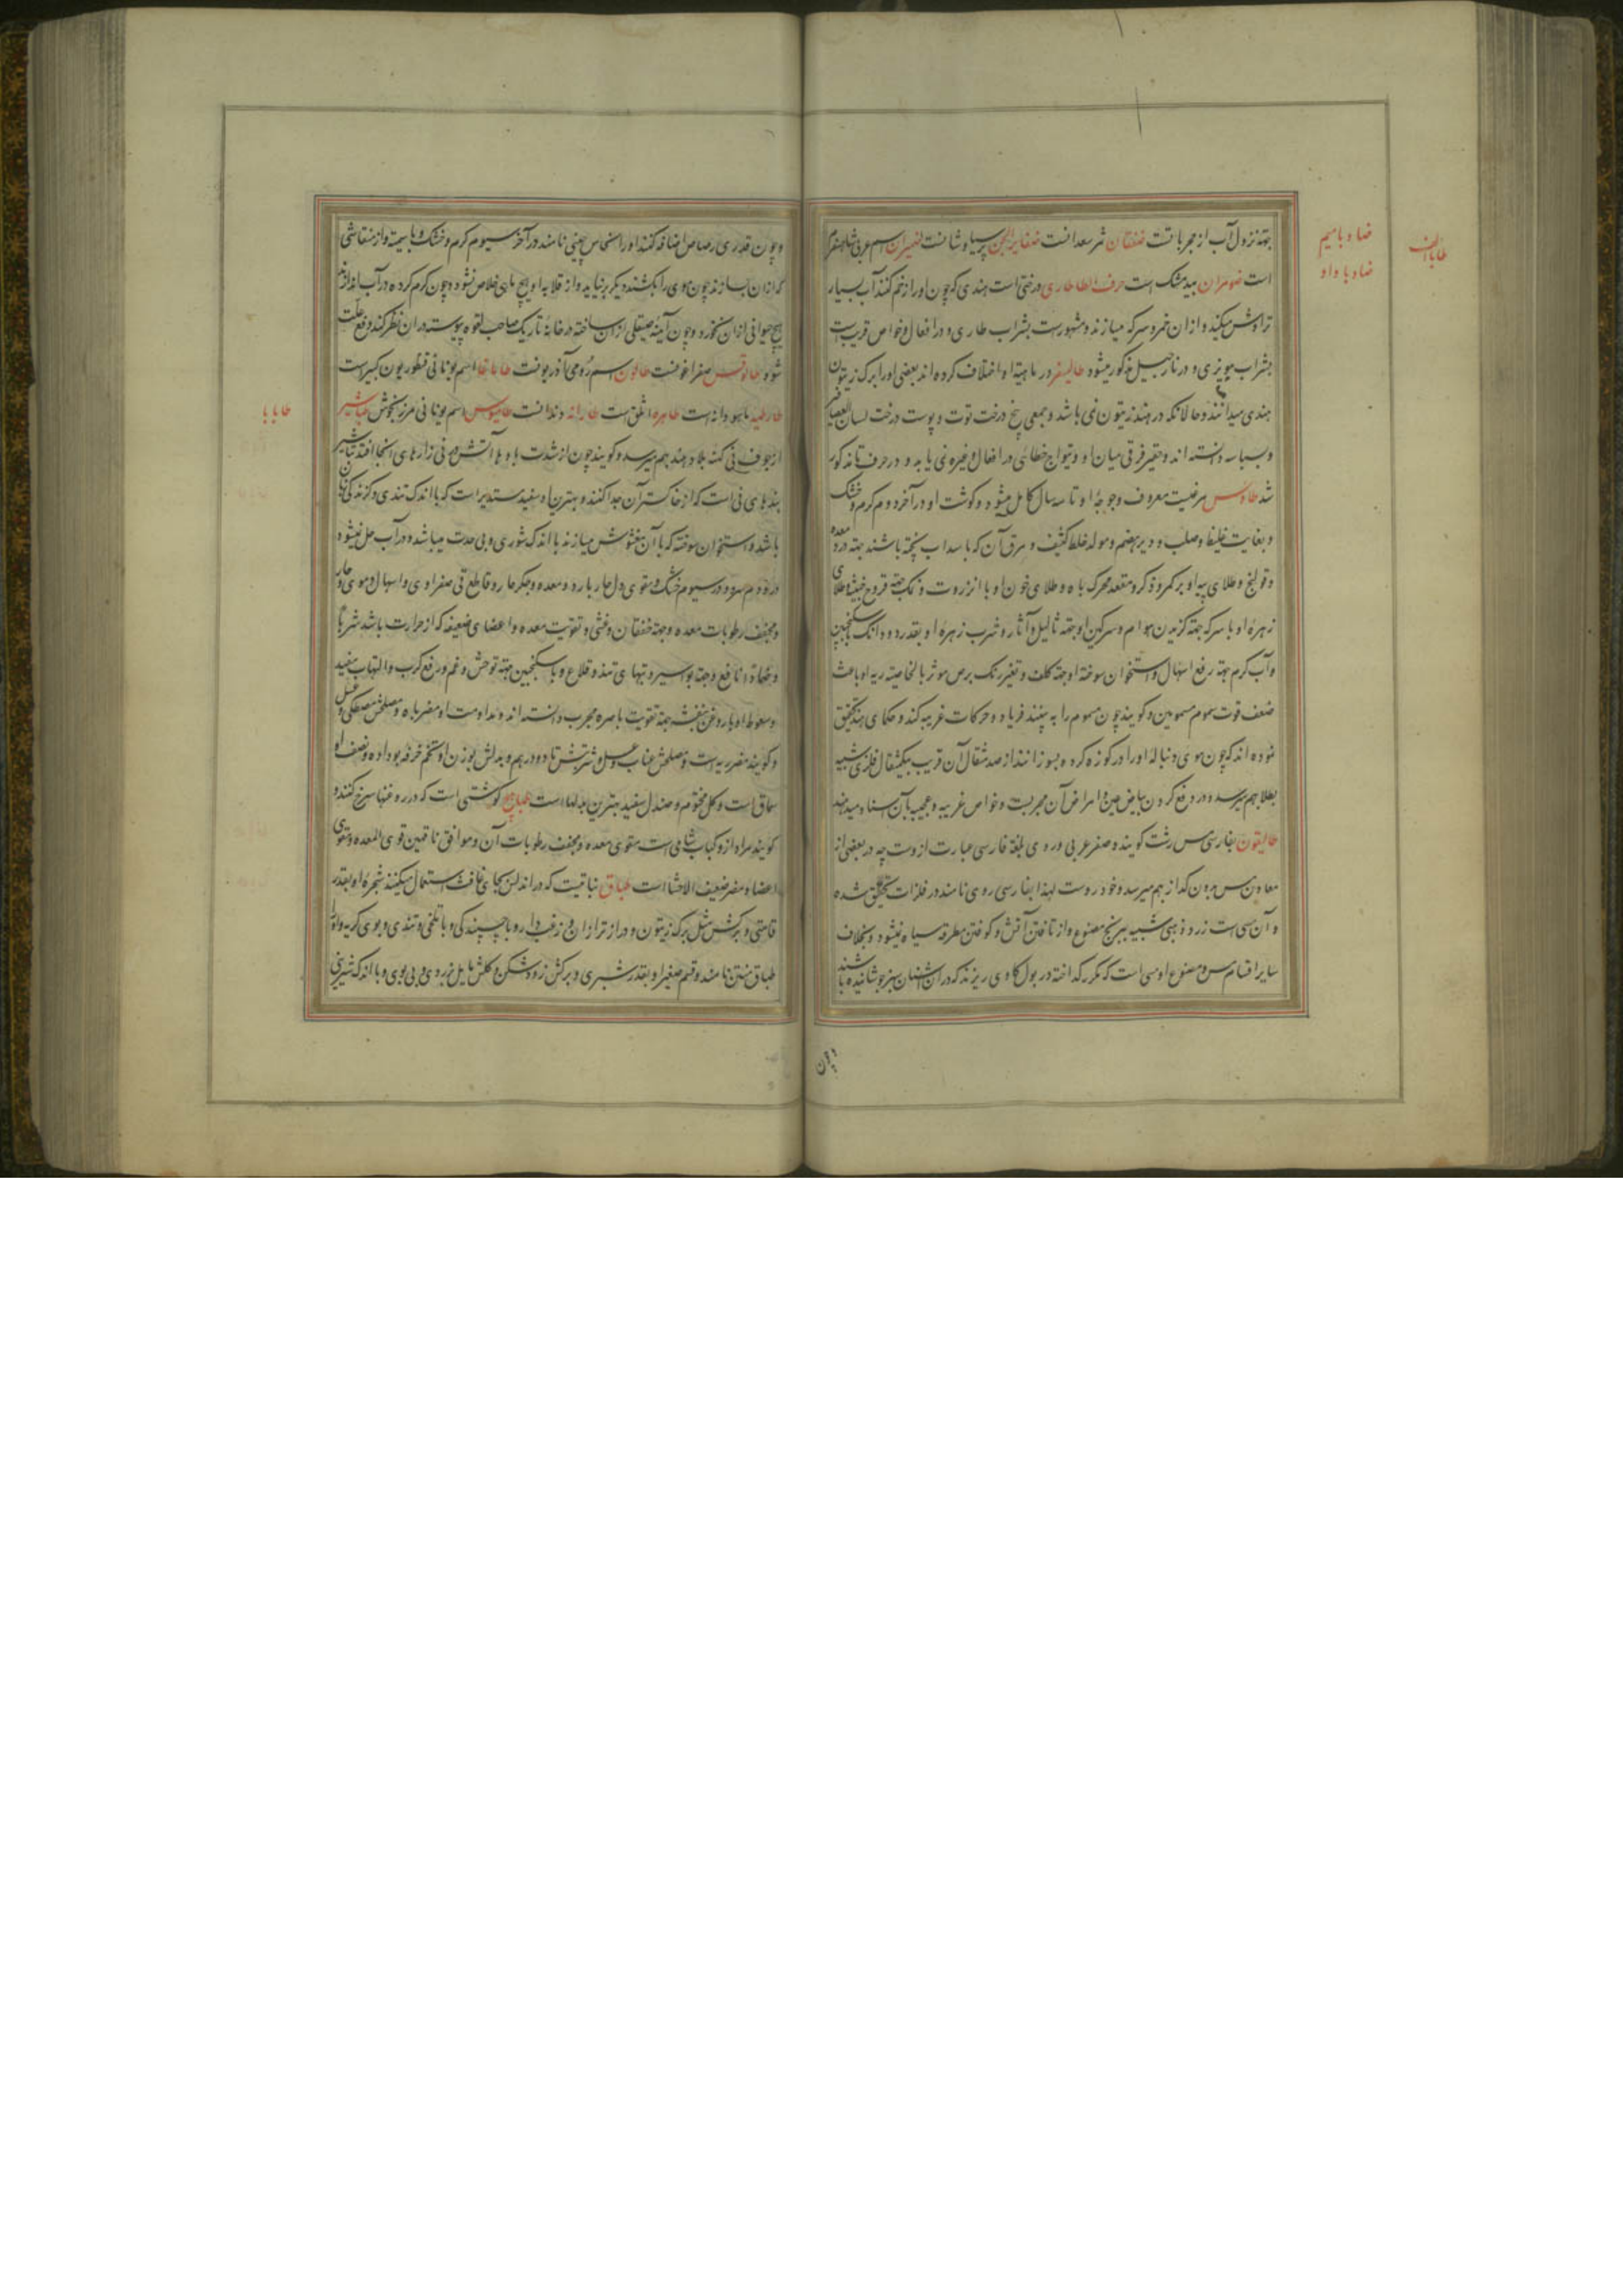 جهة نزول آب از مجربا تست ضغتان ثمر سعدانست ضفایرالجن پرسیاوشانست ضیمران اسم عربی شاهسفرم
است ضومران بید مشک است حرف الطا طاری درختی است هندی که چون او را زخم کنند آب بسیار
تراوش میکند و از آن خمر و سرکه میسازند و مشهور است بشراب طاری و در افعال و خواص قریب است
بشراب مویزی و در نارجیل مذکور میشود طالیسفر در ماهیة او اختلاف کرده اند بعضی او را برک زیتون
هندی میدانند و حالانکه در هند زیتون نمی باشد و جمعی بیخ درخت توت و پوست درخت لسان العصافیر
و بسباسه دانسته اند و حقیر فرقی میان او و تیواج خطائی در افعال و غیره نمی یابد و در حرف تا مذکور
شد طاوس مرغیست معروف و جوجهٔ او تا سه سال کامل میشود و گوشت او در آخر دوم گرم و خشک
و بغایت غلیظ و صلب و دیر هضم و مولد خلط کثیف و مرق آن که با سداب پخته باشند جهة درد معده
و قولنج و طلای پیه او بر کمر و ذکر و مقعد محرک باه و طلای خون او با انزروت و نمک جهة قروح خبیثه و طلای
زهرهٔ او با سرکه جهة گزیدن هوام و سرکین او جهة ثالیل و آثار و شرب زهرهٔ او بقدر دو دانک با سکنجبین
و آب گرم جهة رفع اسهال و استخوان سوخته او جهة کلف و تغییر رنک برص موثر بالخاصیته ریه او باعث
ضعف قوت سموم مسمومین و گویند چون مسموم را به بیند فریاد و حرکات غریبه کند و حکمای هند تحقیق
نموده اند که چون موی دنباله او را در کوزه کرده بسوزانند از صد مثقال آن قریب بیکمثقال فلزی شبیه
بطلا بهم میرسد و در رفع کردن بیاض عین و امراض آن مجربست و خواص غریبه و عجیبه بآن اسناد میدهند
طالیقون بفارسی مس رشت گویند و صفر عربی و روی بلغة فارسی عبارت از وست چه در بعضی از
معادن مس بدون گداز بهم میرسد و خود روست لهذا بفارسی روی نامند در فلزات تحقیق شده
و آن مسی است زرد ذهبی شبیه ببرنج مصنوع و از تافتن آتش و کوفتن مطرقه سیاه نمیشود و بخلاف
سایر اقسام مس و مصنوع او مسی است که مکرر گداخته در بول گاوی ریزند که در آن اشنان سبز جوشانیده باشند
وچون
ضاد با میم
ضاد با واو
طا با الف
و چون قدری رصاص اضافه کنند او را نحاس چینی نامند در آخر سیوم گرم و خشک و با سمیة و از منقاشی
که از آن بسازند چون موی را بکشند دیگر برنیاید و از قلابهٔ او هیچ ماهی خلاص نشود و چون گرم کرده در آب اندازند
هیچ حیوانی از آن نخورد و چون آینه صیقلی از آن ساخته در خانهٔ تاریک صاحب لقوه پیوسته در آن نظر کند رفع علت
شود طالوقس صفراغونست طالون اسم رومی آذربونست طاباقا اسم یونانی قنطوریون کبیر است
طارطیه ماهودانه است طاهره اثلق است طارانه دندانست طامیوس اسم یونانی مرزنجوش طباشیر
از جوف نی کهنه بلاد هند بهم میرسد و گویند چون از شدت بادها آتش در نی زارهای انجا افتد تباشیر
بندهای نی است که از خاکستر آن جدا کنند و بهترین او سفید مستدیر است که با اندک تندی و گزندگی زبان
باشد و استخوان سوخته که با آن مغشوش میسازند با اندک شوری و بی حدت میباشد و در آب حل نمیشود
در دوم سرد و در سیوم خشک و مقوی دل حار بارد و معده و جگر حار و قاطع قی صفراوی و اسهال دموی و حار
و مجفف رطوبات معده و جهة خفقان و غشی و تقویت معده و اعضای ضعیفه که از حرارت باشد شربا
و ضمادا نافع و جهة بواسیر و تبهای تند و قلاع و با سکنجبین جهة توحش و غم و رفع کرب و التهاب مفید
و سعوط او با روغن بنفشه جهة تقویت باصره مجرب دانسته اند و مداومت او مضر باه و مصلحش مصطکی و عسل
و گویند مضر ریه است و مصلحش عناب و عسل و شربتش تا دو درهم و بدلش بوزن او تخم خرفه بو داده و نصف او
سماق است و گل مختوم و صندل سفید بهترین بدلها است طباهیج گوشتی است که در روغنها سرخ کنند و
گویند مراد از و کباب شامی است مقوی معده و مجفف رطوبات آن و موافق ناقهین قوی المعده و مقوی
اعضا و مضر ضعیف الاحشا است طباق نباتیست که در اندلس بجای غافث استعمال میکنند شجرهٔ او بقدر
قامتی و برگش مثل برک زیتون و درازتر از آن و زغب دار و با چسپندگی و با تلخی و تندی و بوی کریه و او را
طباق منتن نامند و قسم صغیر او بقدر شبری و برگش زود شکن و گلش مایل بزردی و بی بوی و با اندک شیرینی
طا با با